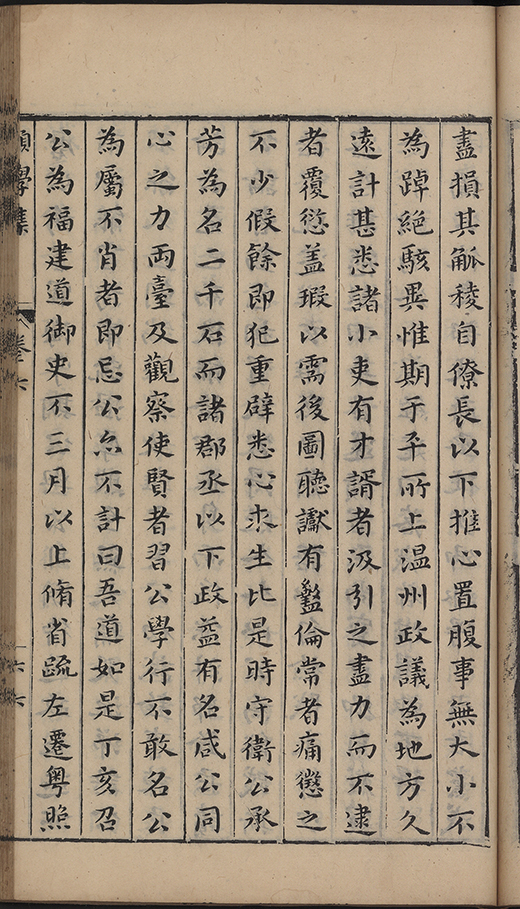 盡損其觚稜自僚長以下推心置腹事無大小不
為踔絶駭異惟期于平所上温州政議為地方久
遠計甚悉諸小吏有才諝者汲引之盡力而不逮
者覆愆盖瑕以需後圖聽讞有盭倫常者痛懲之
不少假餘即犯重辟悉心求生比是時守衛公承
芳為名二千石而諸郡丞以下政益有名咸公同
心之力両臺及觀察使賢者習公學行不敢名公
為屬不肖者即忌公亦不計曰吾道如是丁亥召
公為福建道御史不三月以上脩省疏左遷粤照
學集
卷六
六六